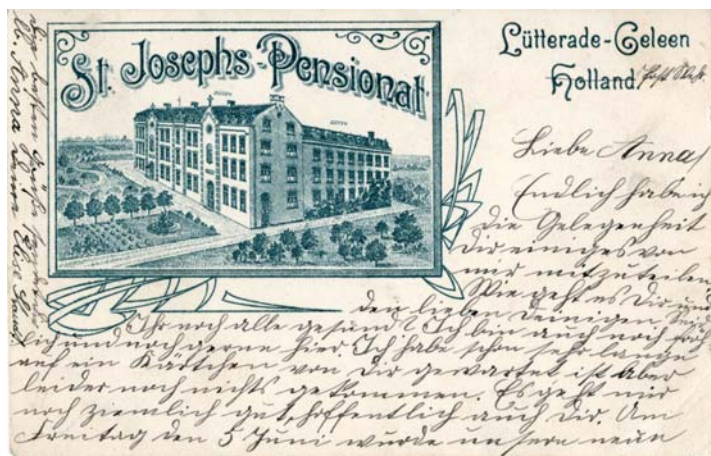 St. Josephs-Pensionat
Lütterade-Geleen
Holland
Liebe Anna!
Endlich habe ich
die Gelegenheit
Dir einiges von
mir mitzuteilen
Wie geht es Dir und
den lieben Deinigen
Ihr noch alle gesund? Ich bin auch noch froh
lich und noch gerne hier. Ich habe schon sehr lange
auf ein Kärtchen von Dir gewartet ist aber
leider noch nichts gekommen. Es geht mir
noch ziemlich gut, hoffentlich auch Dir. Am
Freitag den 5 Juni wurde unsern neun
Die besten Grüße
lb. Anna Elise